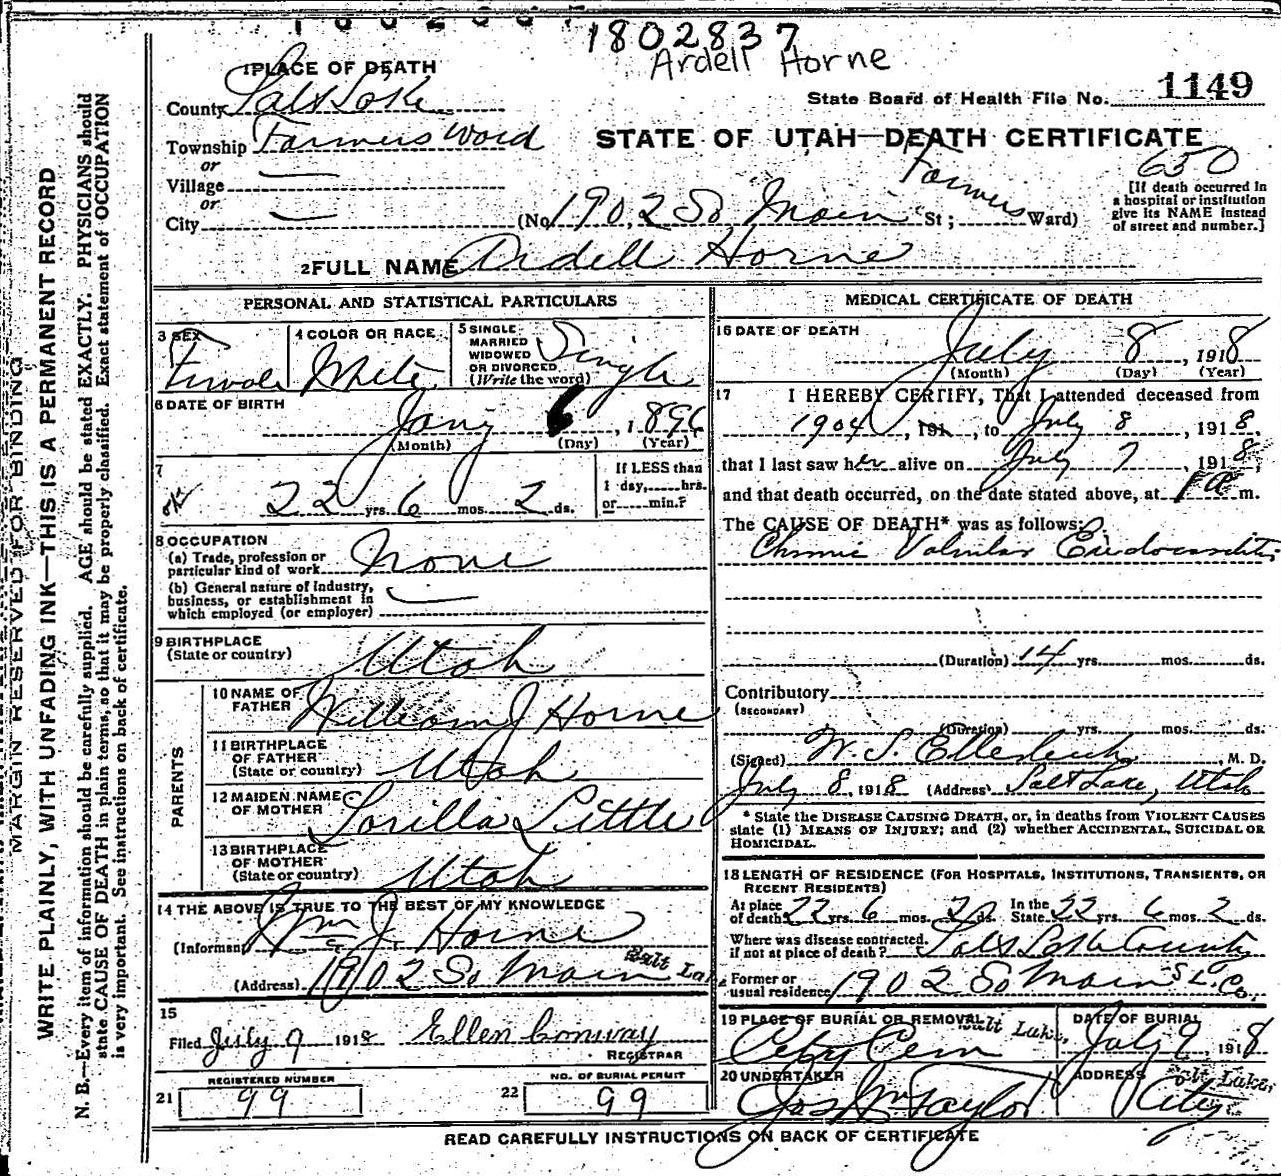 1802837
Ardell Horne
1 PLACE OF DEATH
County Salt Lake
State Board of Health File No. 1149
Township Farmers Ward
STATE OF UTAH—DEATH CERTIFICATE
or
Village
or
City
(No. 1902 So Main St; Farmers Ward)
650
[If death occurred in
a hospital or institution
give its NAME instead
of street and number.]
2 FULL NAME Ardell Horne
MARGIN RESERVED FOR BINDING
WRITE PLAINLY, WITH UNFADING INK—THIS IS A PERMANENT RECORD
N. B.—Every item of information should be carefully supplied. AGE should be stated EXACTLY. PHYSICIANS should
state CAUSE OF DEATH in plain terms, so that it may be properly classified. Exact statement of OCCUPATION
is very important. See instructions on back of certificate.
PERSONAL AND STATISTICAL PARTICULARS
3 SEX
Female
4 COLOR OR RACE
White
5 SINGLE
MARRIED
WIDOWED
OR DIVORCED
(Write the word)
Single
6 DATE OF BIRTH
Jany 6, 1896
(Month) (Day) (Year)
7
22 yrs. 6 mos. 2 ds.
If LESS than
1 day,.....hrs.
or.....min.?
8 OCCUPATION
(a) Trade, profession or
particular kind of work None
(b) General nature of industry,
business, or establishment in
which employed (or employer)
9 BIRTHPLACE
(State or country)
Utah
PARENTS
10 NAME OF
FATHER
William J Horne
11 BIRTHPLACE
OF FATHER
(State or country)
Utah
12 MAIDEN NAME
OF MOTHER
Lorilla Little
13 BIRTHPLACE
OF MOTHER
(State or country)
Utah
14 THE ABOVE IS TRUE TO THE BEST OF MY KNOWLEDGE
(Informant) Wm J. Horne
(Address) 1902 So Main Salt Lake
15
Filed July 9 1918 Ellen Conway
REGISTRAR
REGISTERED NUMBER
21 99
NO. OF BURIAL PERMIT
22 99
MEDICAL CERTIFICATE OF DEATH
16 DATE OF DEATH
July 8, 1918
(Month) (Day) (Year)
17 I HEREBY CERTIFY, That I attended deceased from
1904, 191, to July 8, 1918,
that I last saw her alive on July 7, 1918,
and that death occurred, on the date stated above, at 1 a m.
The CAUSE OF DEATH* was as follows:
Chronic Valvular Endocarditis
(Duration) 14 yrs. mos. ds.
Contributory
(SECONDARY)
(Duration) yrs. mos. ds.
(Signed) W. S. , M. D.
July 8, 1918 (Address) Salt Lake, Utah
* State the DISEASE CAUSING DEATH, or, in deaths from VIOLENT CAUSES
state (1) MEANS OF INJURY; and (2) whether ACCIDENTAL, SUICIDAL OR
HOMICIDAL.
18 LENGTH OF RESIDENCE (FOR HOSPITALS, INSTITUTIONS, TRANSIENTS, OR
RECENT RESIDENTS)
At place
of death 22 yrs. 6 mos. 2 ds.
In the
State 22 yrs. 6 mos. 2 ds.
Where was disease contracted,
if not at place of death? Salt Lake County
Former or
usual residence 1902 So Main S L. Co.
19 PLACE OF BURIAL OR REMOVAL
City Cem Salt Lake,
DATE OF BURIAL
July 9, 1918
20 UNDERTAKER
Jos Wm Taylor
ADDRESS
City Salt Lake,
READ CAREFULLY INSTRUCTIONS ON BACK OF CERTIFICATE